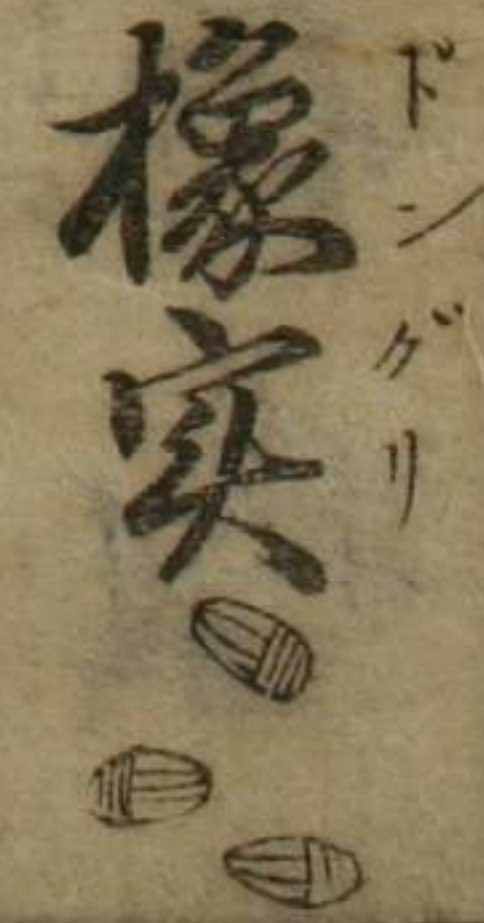 ドングリ
橡実